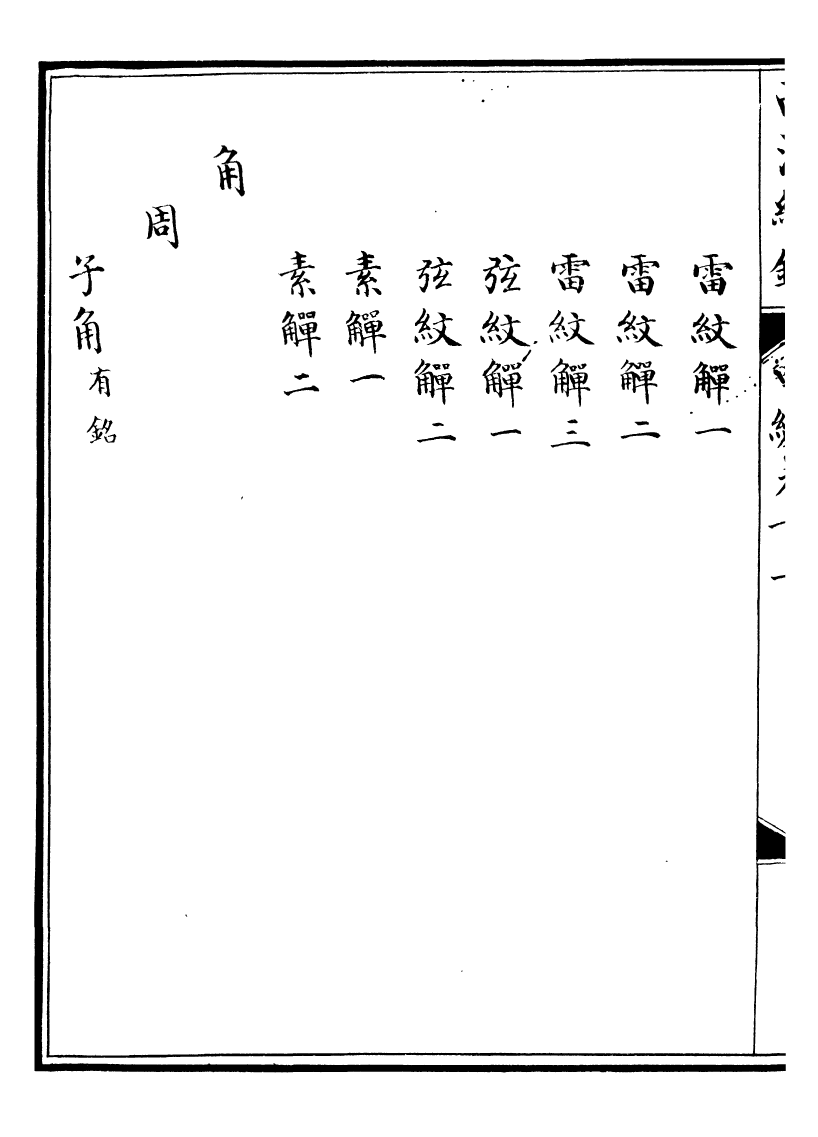 雷紋觶一
雷紋觶二
雷紋觶三
弦紋觶一
弦紋觶二
素觶一
素觶二
角
周
子角有銘